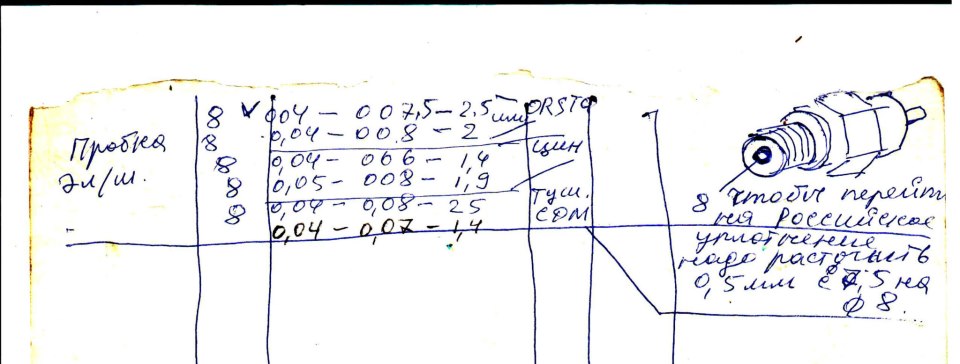 8 ✓ 004 – 007,5 – 2,5 мм ORSTA
8 0,04 – 008 – 2
Пробка
8 0,04 – 006 – 1,4 цин
Эл/ш. 8 0,05 – 008 – 1,9
8 0,04 – 0,08 – 25 Туш.
СОМ
- 0,04 – 0,07 – 1,4
8 чтобы перейти
на Российское
уплотнение
надо расточить
0,5мм с 7,5 на
ф 8.